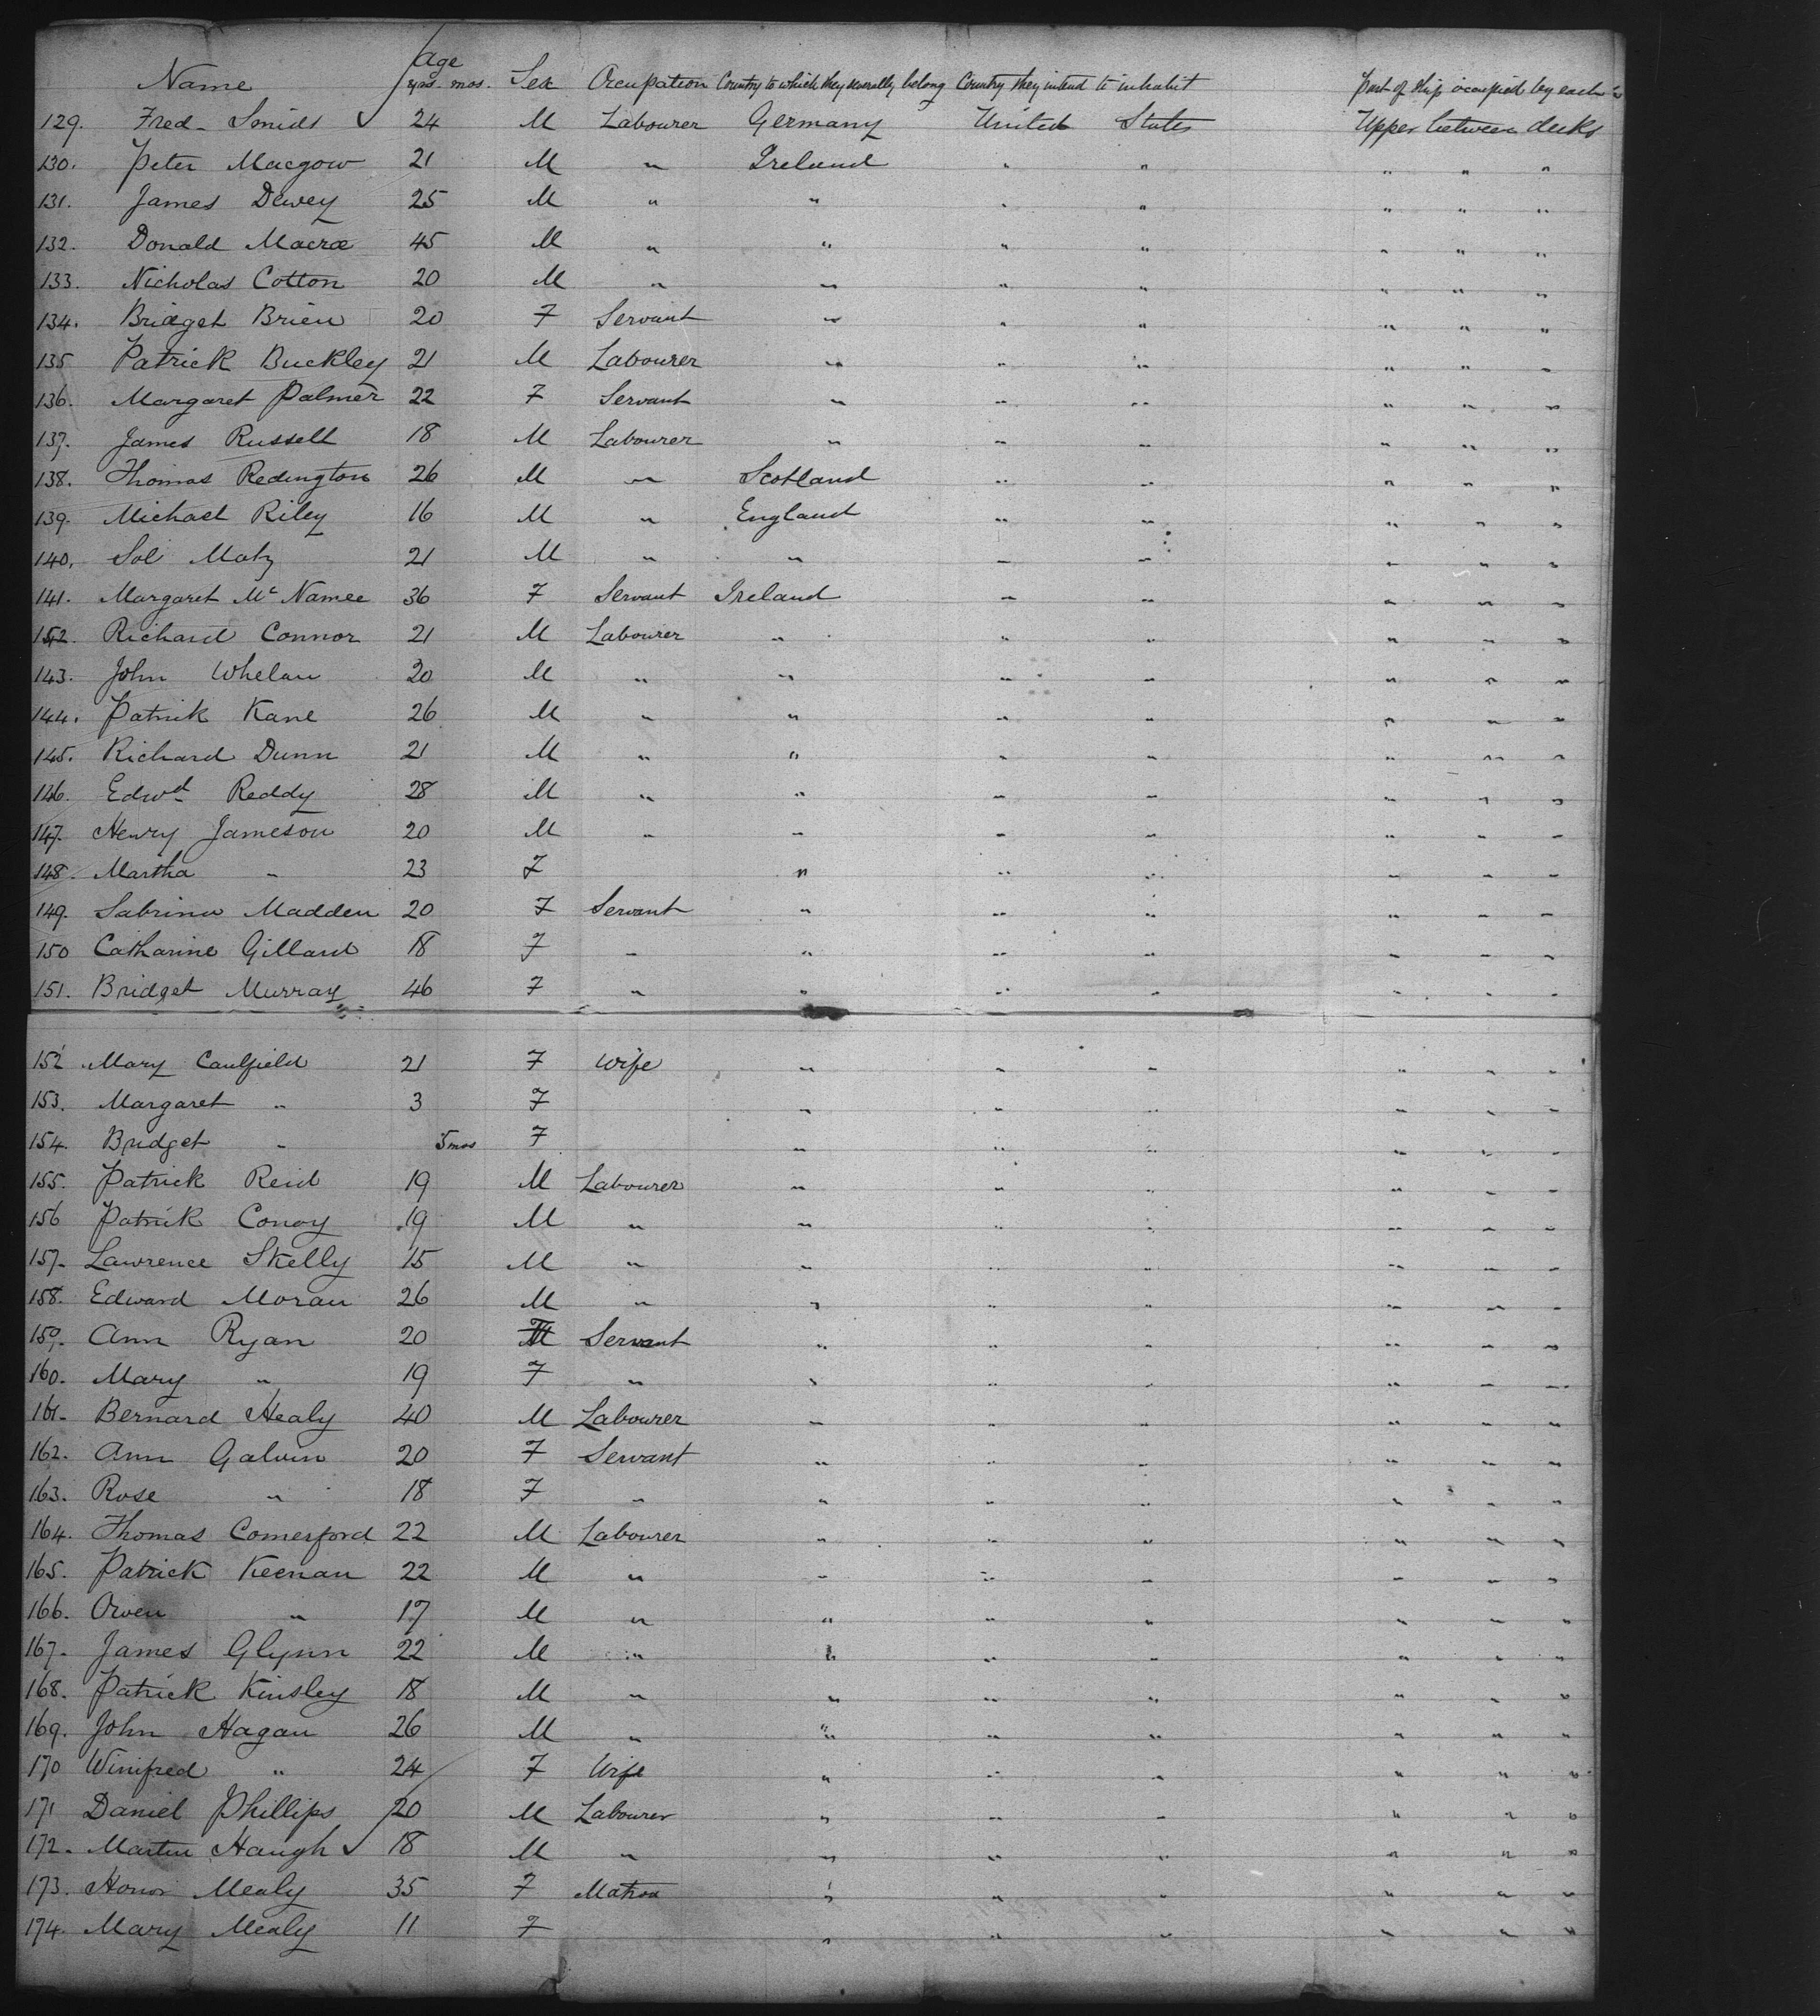 Name Age yrs. mos. Sex Occupation Country to which they severally belong Country they intend to inhabit Part of ship occupied by each
129. Fred. Smidt 24 M Labourer Germany United States Upper between decks
130. Peter Macgow 21 M " Ireland " " " " "
131. James Dewey 25 M " " " " " " "
132. Donald Macrae 45 M " " " " " " "
133. Nicholas Cotton 20 M " " " " " " "
134. Bridget Brien 20 F Servant " " " " " "
135 Patrick Buckley 21 M Labourer " " " " " "
136. Margaret Palmer 22 F Servant " " " " " "
137. James Russell 18 M Labourer " " " " " "
138. Thomas Redington 26 M " Scotland " " " " "
139. Michael Riley 16 M " England " " " " "
140. Sol Matz 21 M " " " " " " "
141. Margaret Mc Namee 36 F Servant Ireland " " " " "
152. Richard Connor 21 M Labourer " " " " " "
143. John Whelan 20 M " " " " " " "
144. Patrick Kane 26 M " " " " " " "
145. Richard Dunn 21 M " " " " " " "
146. Edwd Reddy 28 M " " " " " " "
147. Henry Jameson 20 M " " " " " " "
148. Martha " 23 F " " " " " "
149. Sabrina Madden 20 F Servant " " " " " "
150 Catharine Gillard 18 F " " " " " " "
151. Bridget Murray 46 F " " " " " " "
152 Mary Caulfield 21 F Wife " " " " " "
153. Margaret " 3 F " " " " " "
154. Bridget " 5 mos F " " " " " "
155. Patrick Reid 19 M Labourer " " " " " "
156 Patrick Conoy 19 M " " " " " " "
157. Lawrence Skelly 15 M " " " " " " "
158. Edward Moran 26 M " " " " " " "
159. Ann Ryan 20 F Servant " " " " " "
160. Mary " 19 F " " " " " " "
161. Bernard Healy 40 M Labourer " " " " " "
162. Ann Galvin 20 F Servant " " " " " "
163. Rose " 18 F " " " " " " "
164. Thomas Comerford 22 M Labourer " " " " " "
165. Patrick Keenan 22 M " " " " " " "
166. Owen " 17 M " " " " " " "
167. James Glynn 22 M " " " " " " "
168. Patrick Kinsley 18 M " " " " " " "
169. John Hagan 26 M " " " " " " "
170 Winifred " 24 F Wife " " " " " "
171 Daniel Phillips 20 M Labourer " " " " " "
172. Martin Haugh 18 M " " " " " " "
173. Honor Mealy 35 F Matron " " " " " "
174. Mary Mealy 11 F " " " " " "